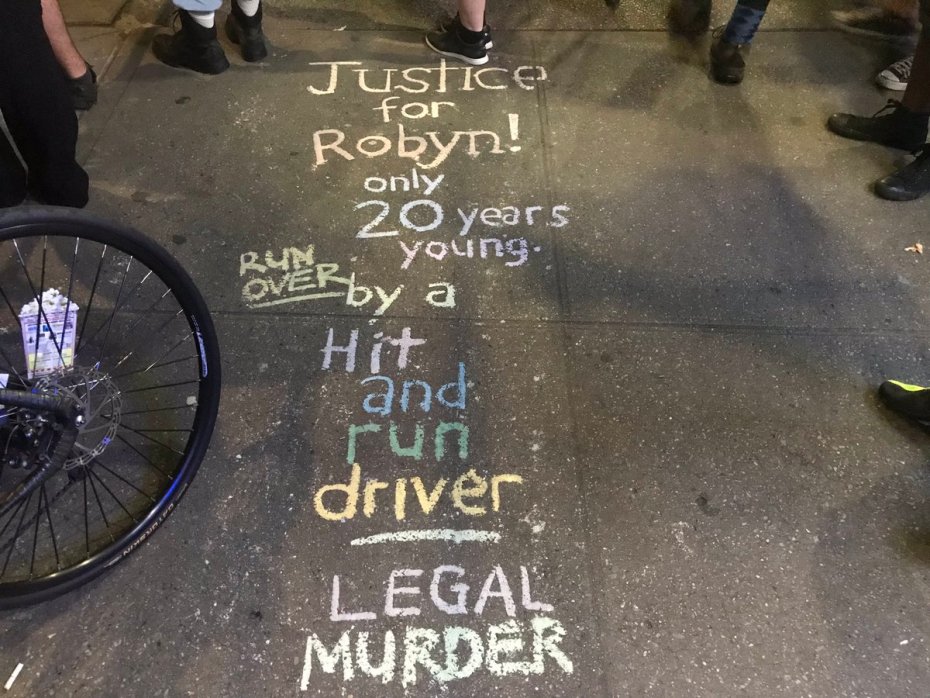 Justice
for
Robyn!
only
20 years
young.
RUN
OVER by a
Hit
and
run
driver
LEGAL
MURDER